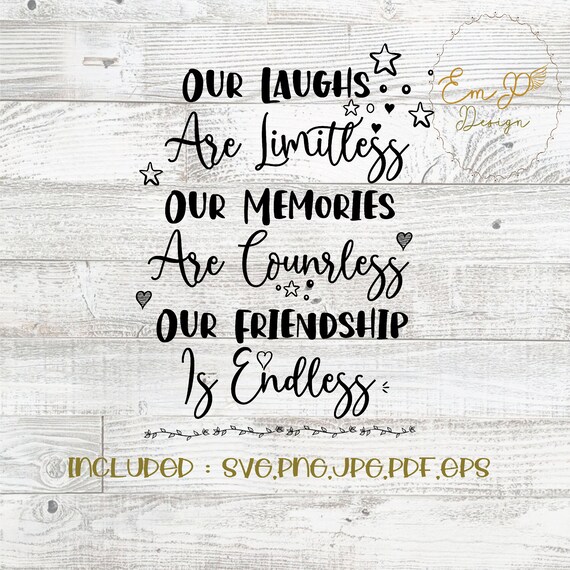 Our Laughs
Are Limitless
Our Memories
Are Counrless
Our Friendship
Is Endless
Em JD
Design
Included : SVG,PNG,JPG,PDF,EPS